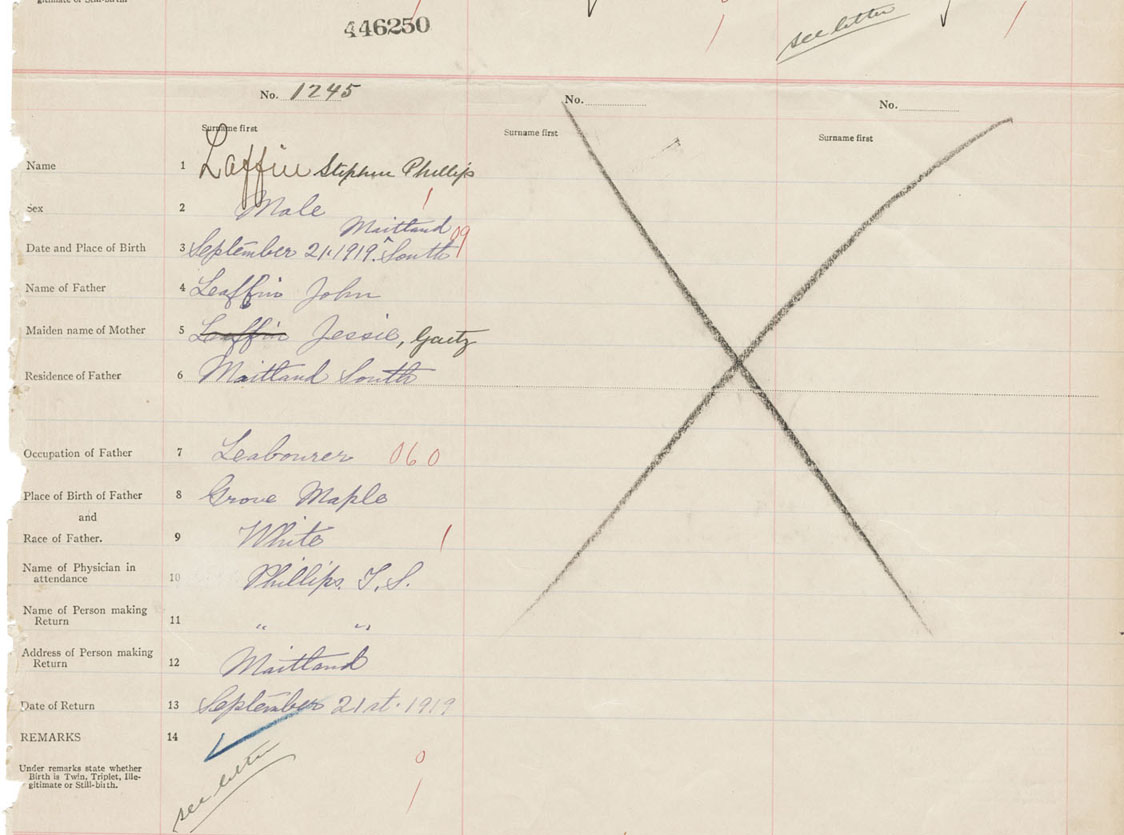 gitimate or Still-birth.
446250
see letter
No. 1245
No.
No.
Surname first
Surname first
Surname first
Name 1 Laffin Stephen Phillips
Sex 2 Male 1
Maitland 09
Date and Place of Birth 3 September 21. 1919. ^ South
Name of Father 4 Leaffin John
Maiden name of Mother 5 Jessie, Gaetz
Residence of Father 6 Maitland South
Occupation of Father 7 Leabourer 060
Place of Birth of Father 8 Grove Maple
and
Race of Father. 9 White 1
Name of Physician in
attendance 10 Phillips. T. S.
Name of Person making
Return 11 " "
Address of Person making
Return 12 Maitland
Date of Return 13 September 21st. 1919
REMARKS 14
Under remarks state whether
Birth is Twin, Triplet, Ille-
gitimate or Still-birth.
0
1
see letter